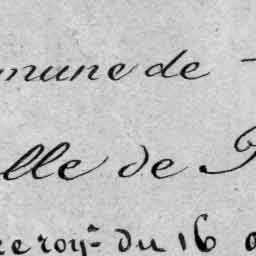 mune de
lle de
ce roy.ⁿ du 16